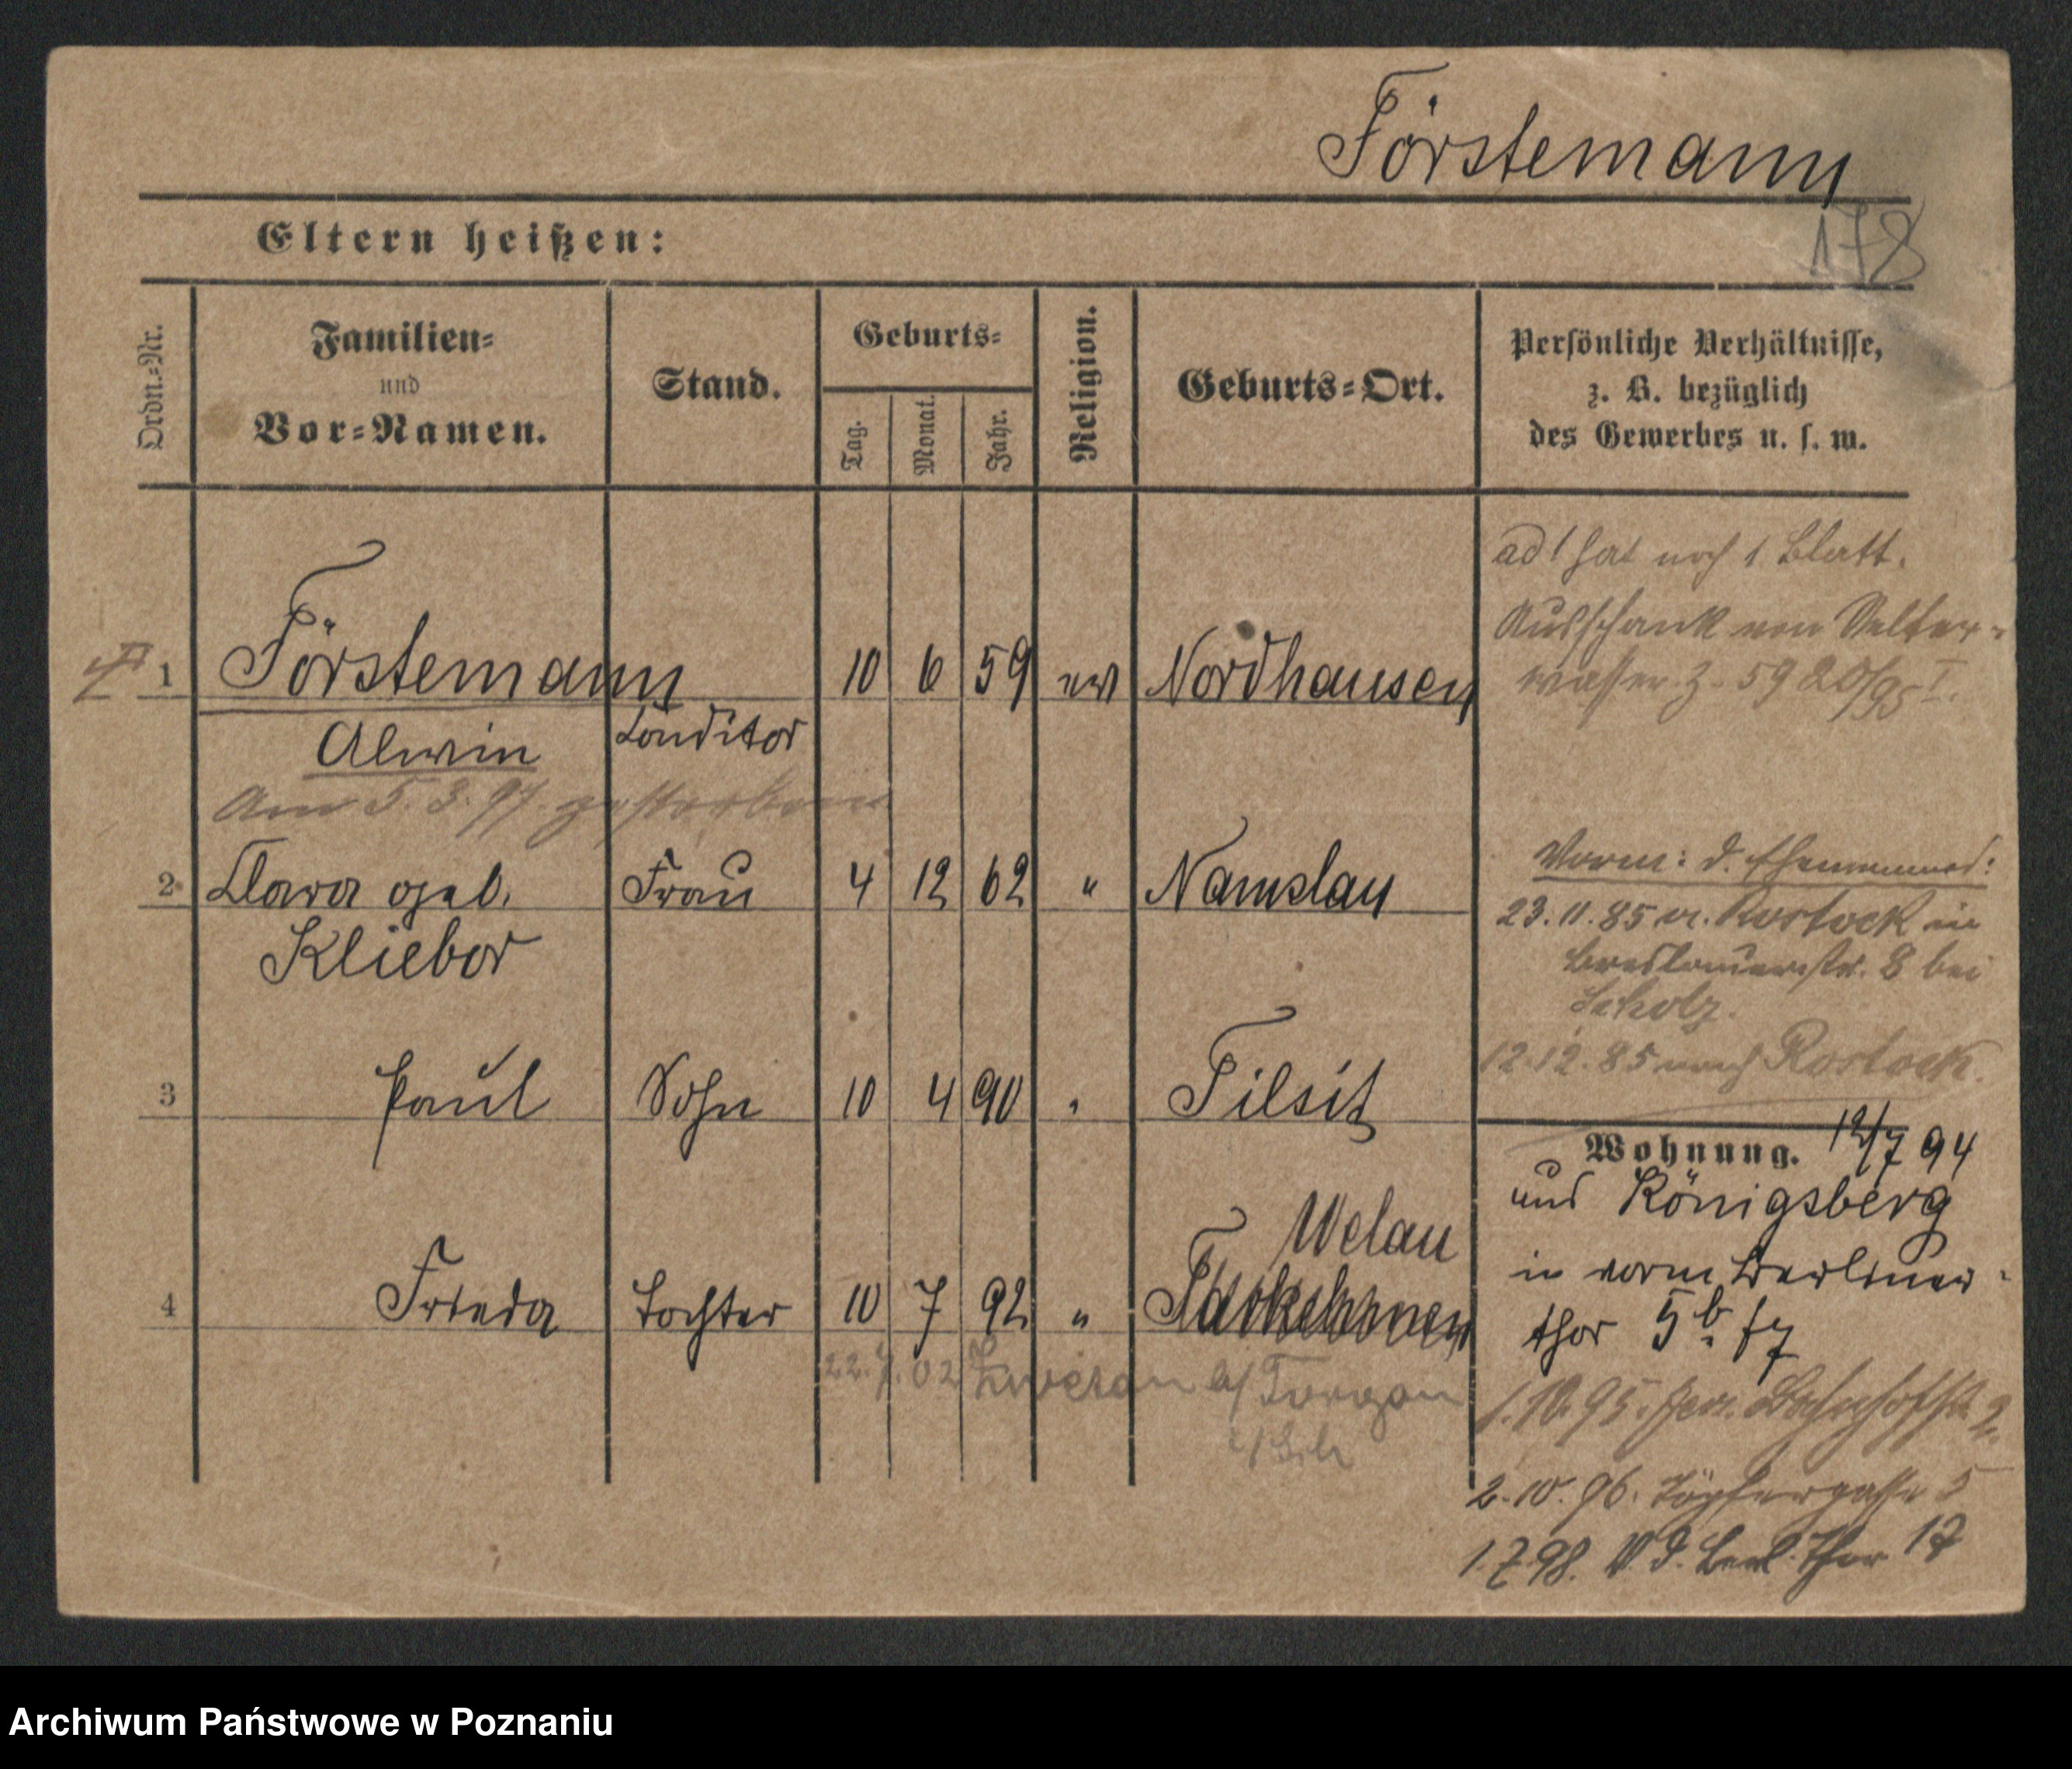 Förstemann
178
Eltern heißen:
Ordn.-Nr.
Familien-
und
Vor-Namen.
Stand.
Geburts-
Tag.
Monat.
Jahr.
Religion.
Geburts-Ort.
Persönliche Verhältnisse,
z. B. bezüglich
des Gewerbes u. s. w.
ad 1 hat noch 1 Blatt.
Ausschank von Selter-
wasser Z. 59 20/95 I.
1 Förstemann 10 6 59 ev Nordhausen
Alwin Conditor
Am 5. 3. 97. gestorben
2 Clara geb. Frau 4 12 62 " Namslau
Kliebor
Vorm: d.
23. 11. 85 v. Rostock in
Breslauerstr. 8 bei
Scholz.
12. 12. 85 nach Rostock.
3 Paul Sohn 10 4 90 " Tilsit
Wohnung. 12/7 94
aus Königsberg
in vorm Berliner-
thor 5b
Welau
4 Frieda Tochter 10 7 92 "
22. 7. 02 a/ Torgau
1. 10. 95. Bahnhofstr 2.
2. 10. 96. Töpfergasse 5
1. 7. 98. V. d. Berl. Thor 17
Archiwum Państwowe w Poznaniu